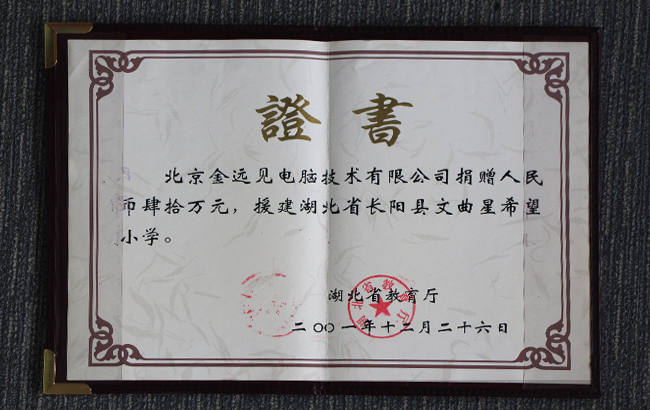 證書
北京金远见电脑技术有限公司捐赠人民
币肆拾万元，援建湖北省长阳县文曲星希望
小学。
湖北省教育厅
湖北省教育厅
二〇〇一年十二月二十六日